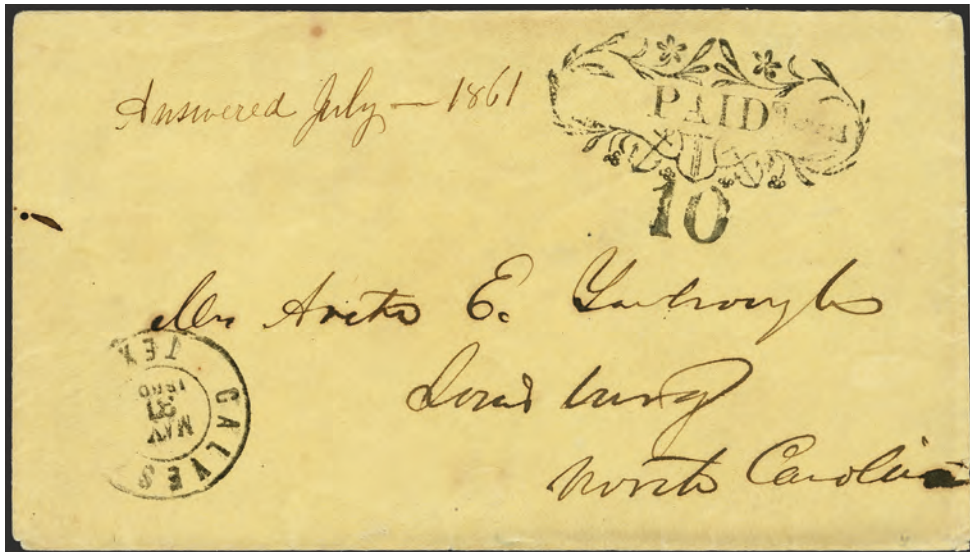 Answered July — 1861
PAID
10
Mr E. Yarbrough
Louisburg
North Carolina
GALVES TEX
MAY
31